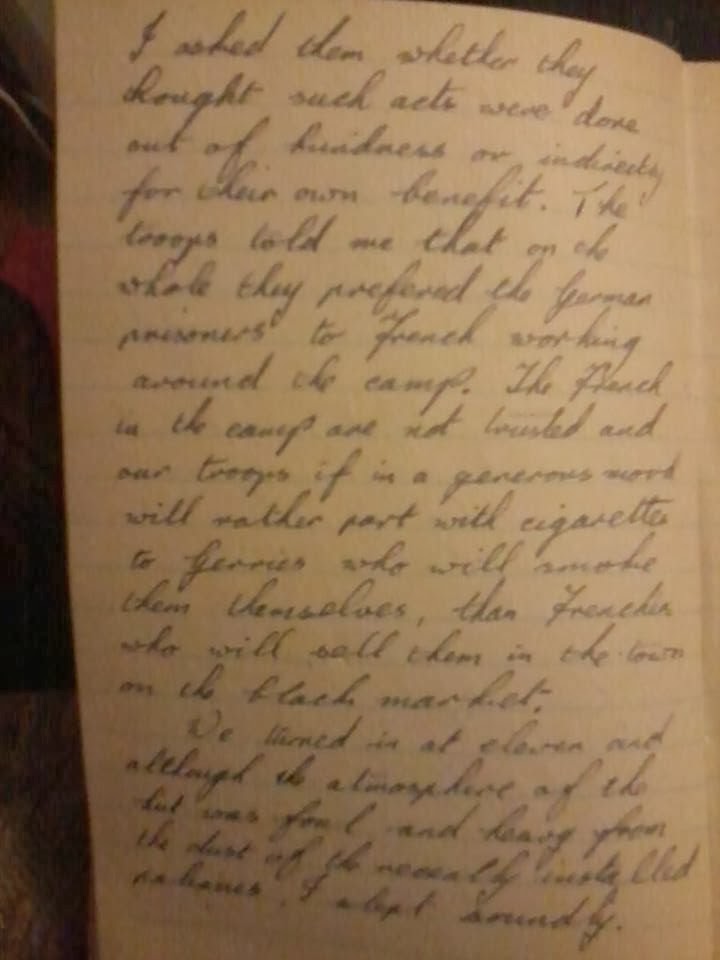 I asked them whether they
thought such acts were done
out of kindness or indirectly
for their own benefit. The
troops told me that on the
whole they prefered the German
prisoners to French working
around the camp. The French
in the camp are not trusted and
our troops if in a generous mood
will rather part with cigarettes
to Gerries who will smoke
them themselves, than Frenchies
who will sell them in the town
on the black market.
We turned in at eleven and
although the atmosphere of the
hut was foul and heavy from
the dust of the recently installed
I slept soundly.